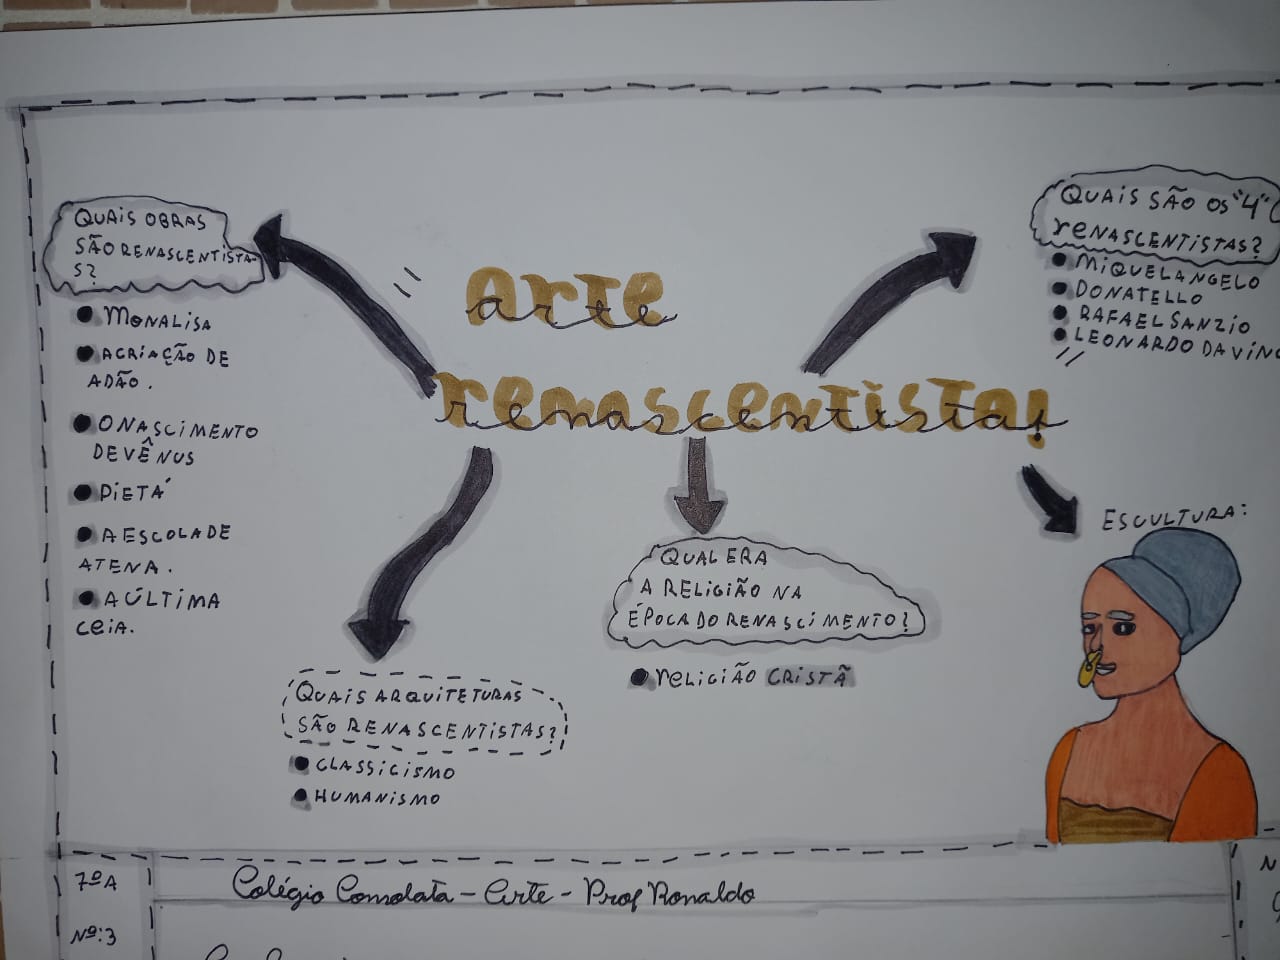 QUAIS OBRAS
SÃO RENASCENTISTA-
S?
MONALISA
A CRIAÇÃO DE
ADÃO.
O NASCIMENTO
DE VÊNUS
PIETÁ
A ESCOLA DE
ATENA.
A ÚLTIMA
CEIA.
"arte
renascentista!
QUAIS SÃO OS "4"
RENASCENTISTAS?
MIQUELANGELO
DONATELLO
RAFAEL SANZIO
LEONARDO DA VINC
QUAIS ARQUITETURAS
SÃO RENASCENTISTAS?
CLASSICISMO
HUMANISMO
QUAL ERA
A RELIGIÃO NA
ÉPOCA DO RENASCIMENTO?
RELIGIÃO CRISTÃ
ESCULTURA:
7ºA
Colégio Consolata - Arte - Prof Ronaldo
Nº:3
N